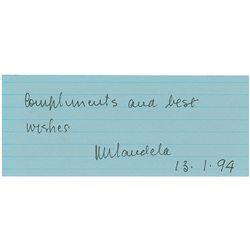 Compliments and best
wishes
NMandela
13.1.94